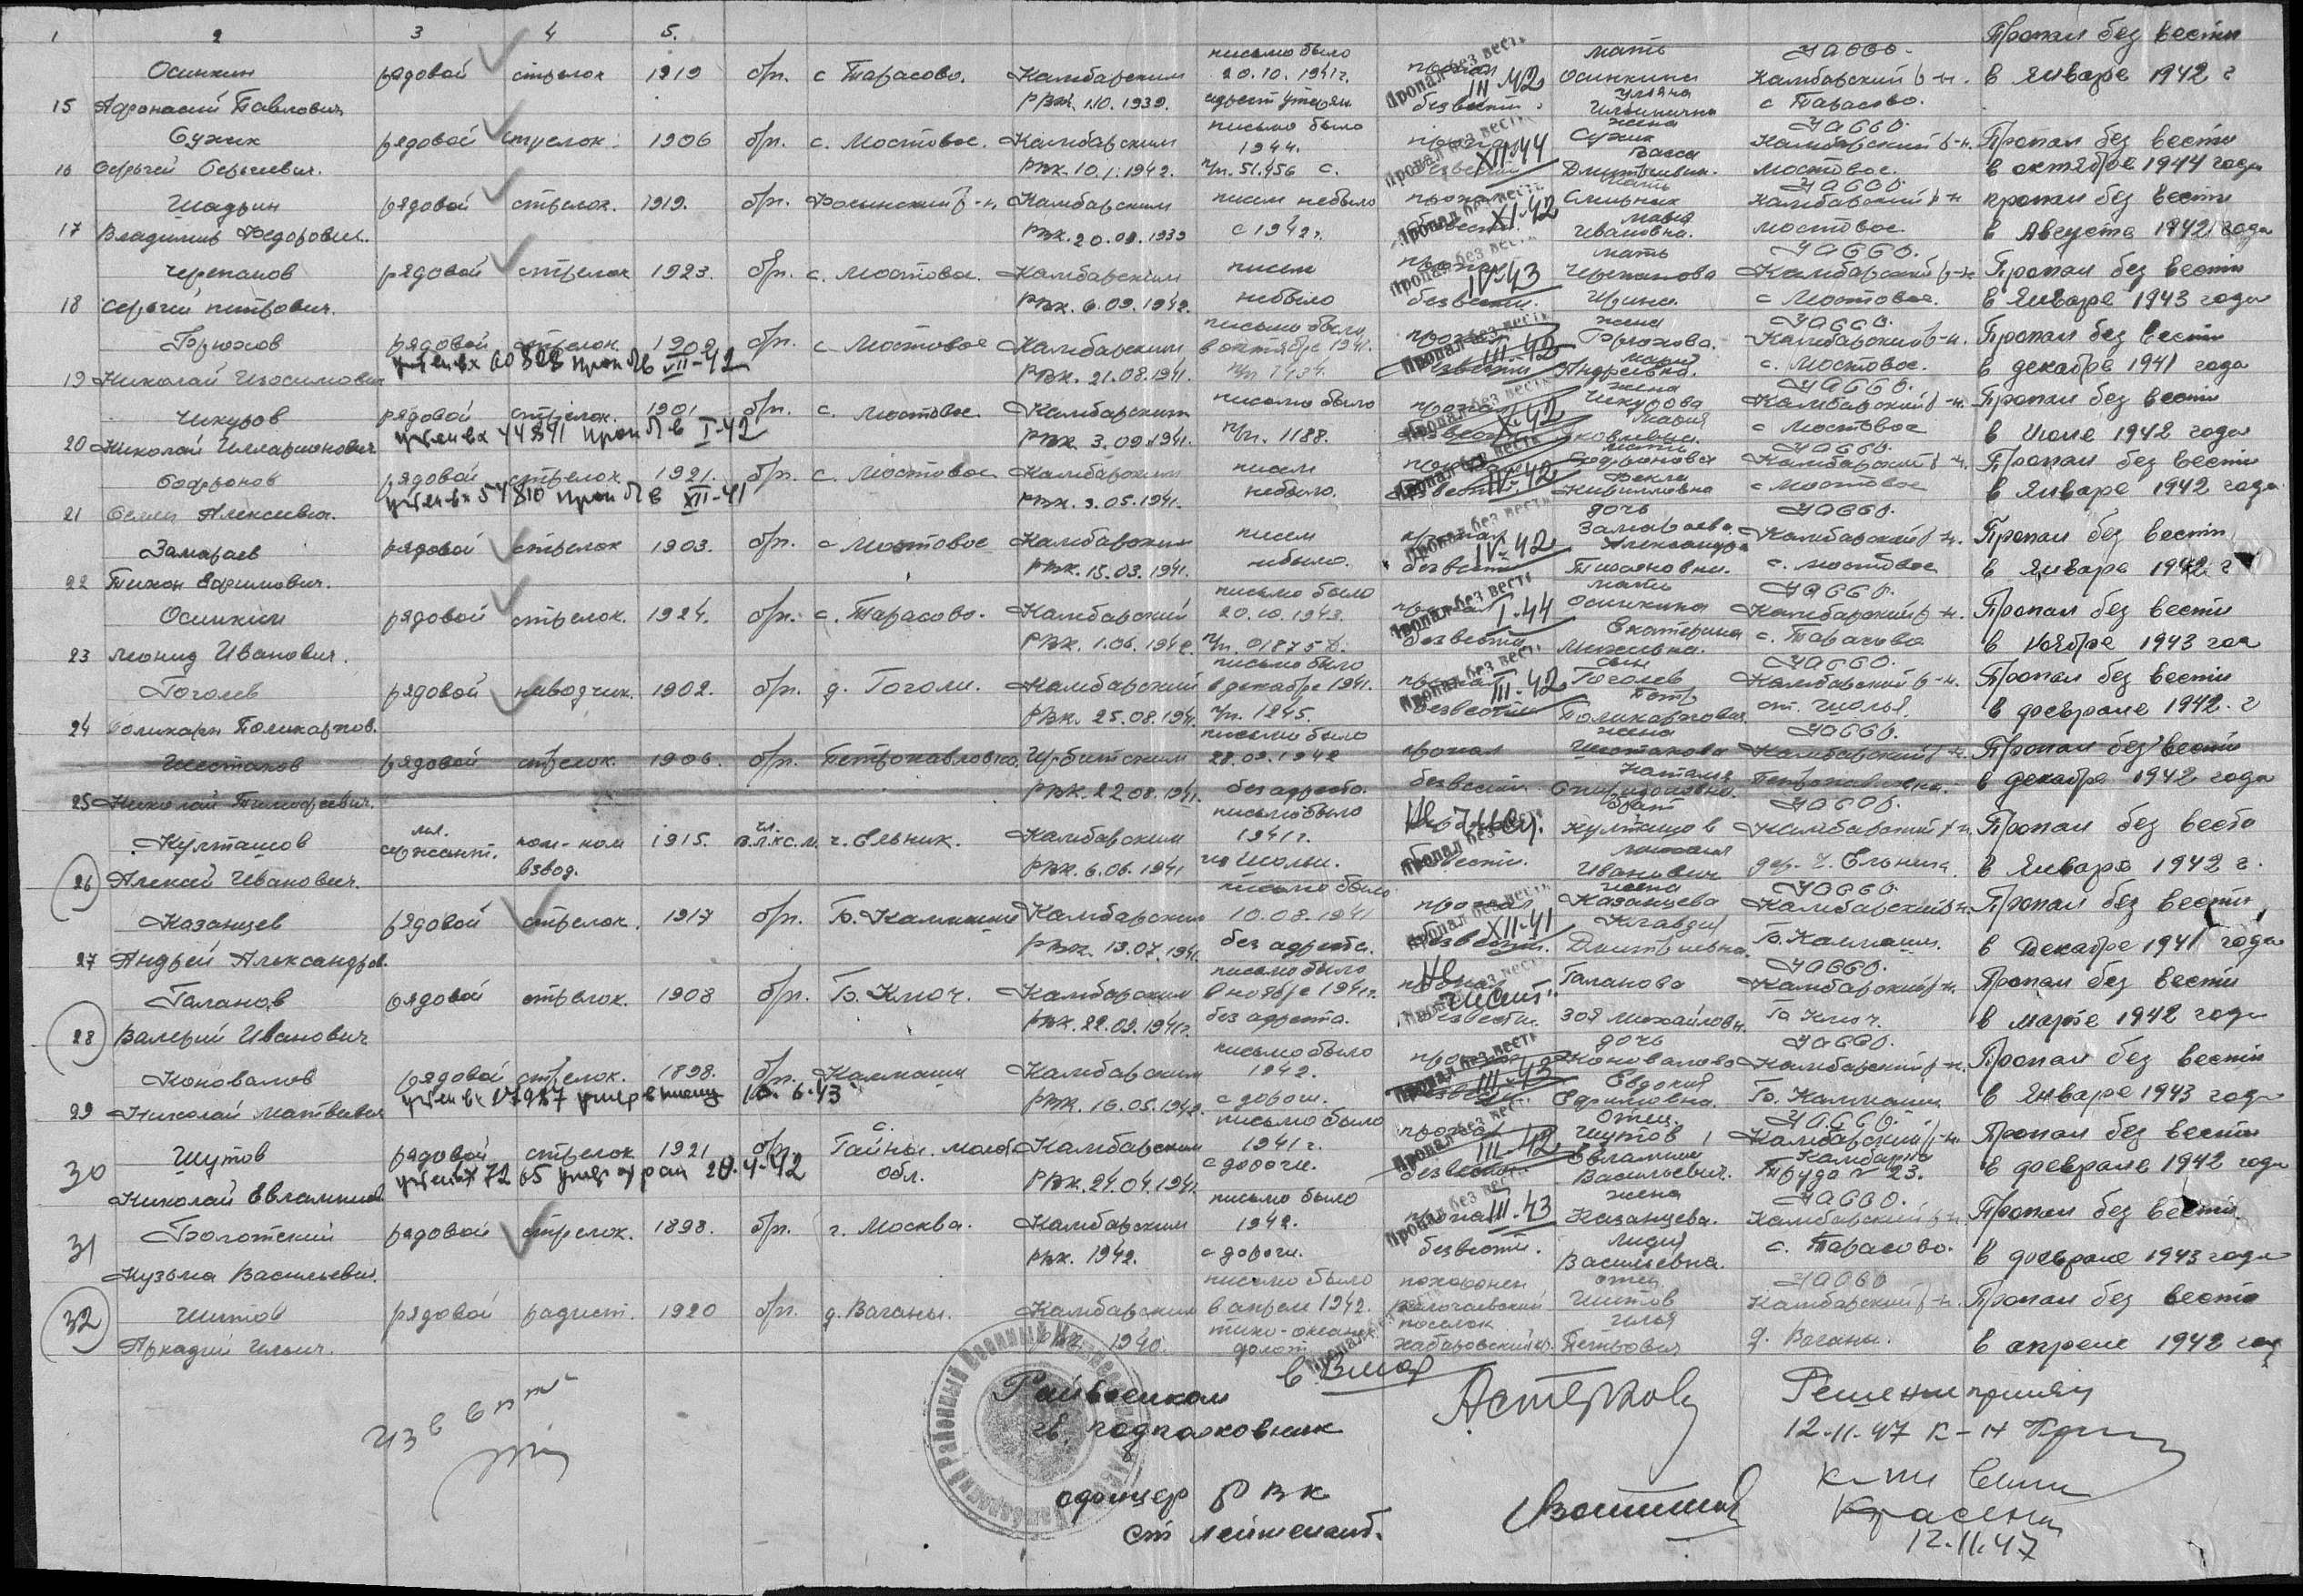 1 2 3 4 5.
15 Осинкин Афонасий Павлович рядовой стрелок 1919 бр. с Тарасово. Камбарским РВК. 1.10.1939. письмо было 20.10.1941г. адрест утерян пропал безвести. Пропал без вести III-42 мать Осинкина Ульяна Ильинична УАССО. Камбарский р-н. с Тарасово. Пропал без вести в Январе 1942 г
16 Сужик Сергей Сергеевич. рядовой стрелок. 1906 бр. с. Мостовое. Камбарским РВК. 10.1.1942. письмо было 1944. п/п. 51.456 С. пропал безвести Пропал без вести XII-44 жена Сужик Васса УАССО. Камбарский р-н. Мостовое. Пропал без вести в октябре 1944 года
17 Шадрин Владимир Федорович. рядовой стрелок. 1919. бр. Фокинский р-н Камбарским РВК. 20.09.1939 писем небыло с 1942г. пропал безвести Пропал без вести XI-42 мать Мария Ивановна. УАССО. Камбарский р-н Мостовое. пропал без вести в Августе 1942 года
18 Черепанов Сергей петрович. рядовой стрелок 1923. бр. с. Мостовое. Камбарским РВК. 6.09.1942. писем небыло пропал безвести. Пропал без вести IV-43 мать Черепанова Ирина. УАССО. Камбарский р-н с Мостовое. Пропал без вести в Январе 1943 года
19 Брюхов Николай Изосимович рядовой стрелок 1902 бр. с Мостовое Камбарским РВК. 21.08.1941. письмо было в октябре 1941. п/п 1434. пропал безвести Пропал без вести III-42 жена Брюхова. Мария Андреевна. УАССО. Камбарский р-н. с. Мостовое. Пропал без вести в декабре 1941 года
20 Чикуров Николай Илларионович рядовой стрелок. 1901 бр. с. Мостовое. Камбарским РВК. 3.09.1941. письмо было п/п. 1188. пропал безвести Пропал без вести X-42 жена Чикурова Мария Яковлевна. УАССО. Камбарский р-н. с Мостовое Пропал без вести в Июле 1942 года
учтен вх 44841 проп б/в I-42
21 Сафронов Семен Алексеевич. рядовой стрелок 1921. бр. с. Мостовое Камбарским РВК. 3.05.1941. писем небыло. пропал безвести Пропал без вести IV-42 мать Сафронова Фекла Кирилловна УАССО. Камбарский р-н. с Мостовое Пропал без вести в Январе 1942 года
учтен вх 54810 проп б/в XII-41
22 Замараев Тихон Ефимович. рядовой стрелок 1903. бр. с Мостовое Камбарским РВК. 15.03.1941. писем небыло. пропал безвести Пропал без вести IV-42 дочь Замараева. Александра Тихоновна. УАССО. Камбарский р-н. с. Мостовое Пропал без вести в Январе 1942 г
23 Осинкин Леонид Иванович. рядовой стрелок. 1924. бр. с. Тарасово. Камбарский РВК. 1.06.1942. письмо было 20.10.1943. п/п. 01875 Д. пропал безвести Пропал без вести I-44 мать Осинкина Екатерина УАССО. Камбарский р-н. с. Тарасово Пропал без вести в Ноябре 1943 год
24 Гоголев Поликарп Поликарпов. рядовой наводчик. 1902. бр. д. Гоголи. Камбарский РВК. 25.08.1941. письмо было в декабре 1941. п/п. 1245. пропал безвести Пропал без вести III-42 сын Гоголев Петр Поликарпович УАССО. Камбарский р-н. Пропал без вести в феврале 1942. г
25 Шестаков Николай Тимофеевич. рядовой стрелок 1906. бр. Петропавловско. Ирбитским РВК 22.08.1941. письмо было 28.09.1942 без адреса. пропал безвести жена Шестакова Наталья Спиридоновна. УАССО. Камбарский р-н. Пропал без вести в декабре 1942 года
26 Култашов Алексей Иванович. мл. сержант. ком-ком взвод. 1915. чл. в.л.кс.м. ч. Ельник. Камбарским РВК. 6.06.1941 письмо было 1941г. безвести. Пропал без вести брат Култашов Иванович УАССО. Камбарский р-н. дер. Ч. Ельник. Пропал без вести в Январе 1942 г.
27 Казанцев Андрей Александров. рядовой стрелок. 1917 бр. Б. Калмаши Камбарским РВК. 13.07.1941. письмо было 10.08.1941 без адреса. пропал безвести. Пропал без вести XII-41 жена Казанцева Клавдия Дмитриевна. УАССО. Камбарский р-н. Б. Калмаши. Пропал без вести в Декабре 1941 года
28 Галанов Валерий Иванович рядовой стрелок. 1908 бр. Б. Ключ. Камбарским РВК. 22.09.1941г. письмо было в ноябре 1941г. без адреста. пропал безвести. Галанова Зоя Михайловн. УАССО. Камбарский р-н. Б Ключ. Пропал без вести в марте 1942 года
29 Коновалов Николай Матвеевич рядовой стрелок. 1898. бр. Калмаши Камбарским РВК. 16.05.1942. письмо было 1942. с дороги. пропал безвести Пропал без вести III-43 дочь Коновалова Евдокия УАССО. Камбарский р-н. Б. Калмаши Пропал без вести в Январе 1943 года
30 Шутов Николай Евлампиев. рядовой стрелок 1921 бр. с. Гайны. Молот. обл. Камбарским РВК. 24.04.1941. письмо было 1941г. с дороги. пропал безвести Пропал без вести III-42 отец. Шутов Евлампий Васильевич. УАССО. Камбарский р-н. Камбарка Труда № 23. Пропал без вести в феврале 1942 года
31 Болотский Кузьма Васильевич. рядовой стрелок. 1898. бр. г. Москва. Камбарским РВК. 1942. письмо было 1942. с дороги. пропал безвести. Пропал без вести III-43 жена Казанцева. Лидия Васильевна. УАССО. Камбарский р-н с. Тарасово. Пропал без вести в феврале 1943 года
32 Шитов Аркадий Ильич. рядовой радист. 1920 бр. д. Ваганы. Камбарским РВК. 1940. письмо было в апреле 1942. тихо-океанс. флот похоронен поселок Хабаровский кр. отец Шитов Илья Петрович УАССО Камбарский р-н. д. Ваганы. Пропал без вести в апреле 1942 год
Райвоенком
гв. подполковник
офицер РВК
ст лейтенант.
Решение принял
12.11.47 к-н
12.11.47